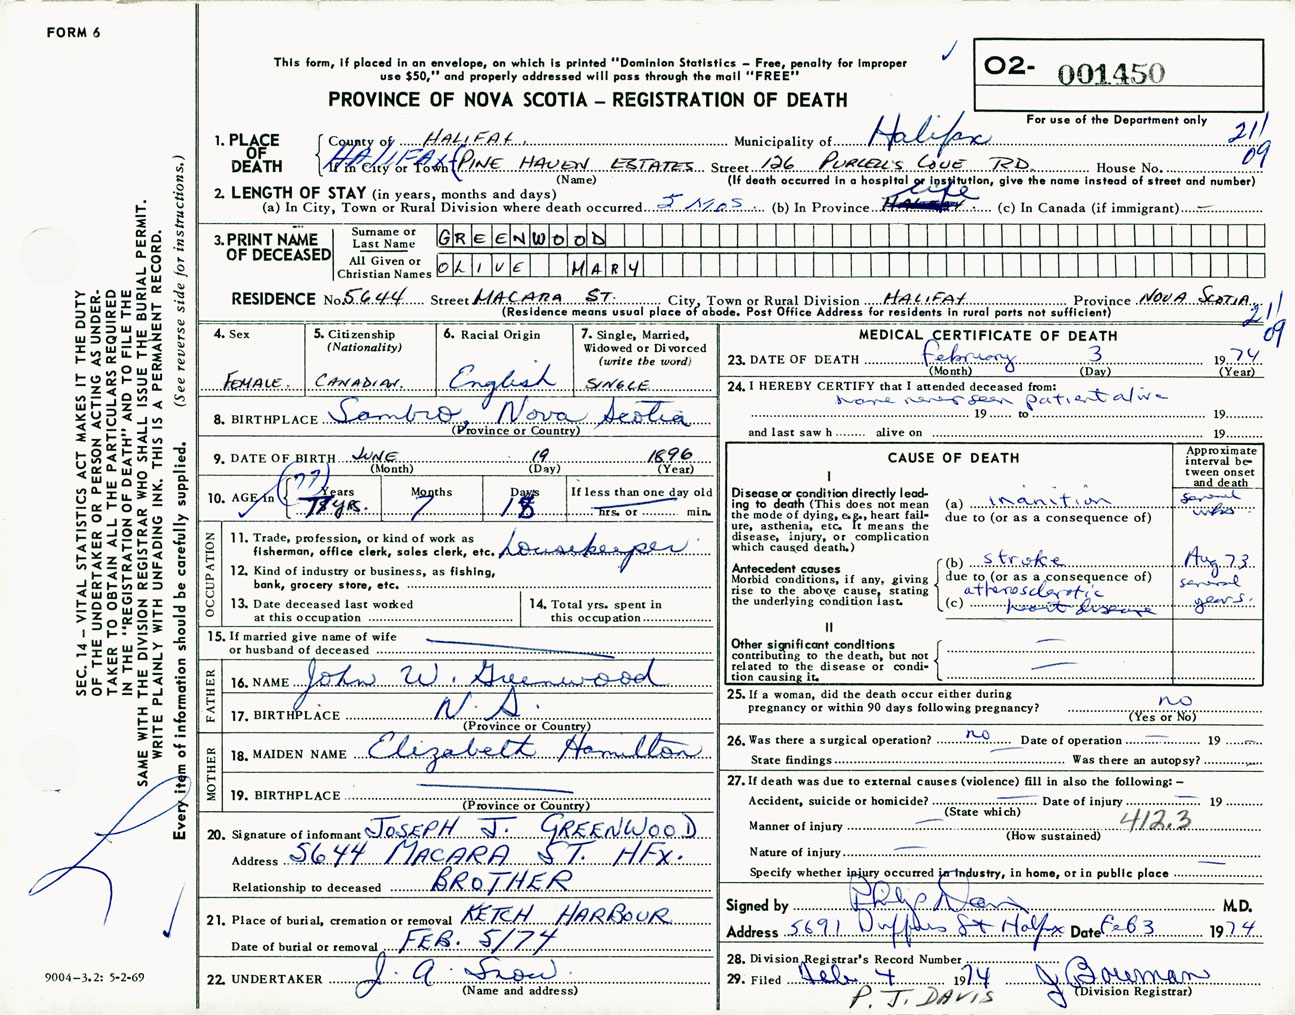 FORM 6
This form, if placed in an envelope, on which is printed "Dominion Statistics – Free, penalty for improper
use $50," and properly addressed will pass through the mail "FREE"
PROVINCE OF NOVA SCOTIA – REGISTRATION OF DEATH
O2- 001450
For use of the Department only
211
09
1. PLACE OF DEATH
County of HALIFAX Municipality of Halifax
HALIFAX If in City or Town PINE HAVEN ESTATES Street 126 PURCELL'S COVE RD. House No.
(Name) (If death occurred in a hospital or institution, give the name instead of street and number)
2. LENGTH OF STAY (in years, months and days)
(a) In City, Town or Rural Division where death occurred 5 MOS (b) In Province life (c) In Canada (if immigrant) —
3. PRINT NAME OF DECEASED
Surname or Last Name GREENWOOD
All Given or Christian Names OLIVE MARY
RESIDENCE No. 5644 Street MACARA ST. City, Town or Rural Division HALIFAX Province NOVA SCOTIA
(Residence means usual place of abode. Post Office Address for residents in rural parts not sufficient)
211
09
4. Sex
FEMALE.
5. Citizenship
(Nationality)
CANADIAN.
6. Racial Origin
English
7. Single, Married,
Widowed or Divorced
(write the word)
SINGLE
8. BIRTHPLACE Sambro, Nova Scotia
(Province or Country)
9. DATE OF BIRTH JUNE 19 1896
(Month) (Day) (Year)
10. AGE in (77) Years Months Days If less than one day old
78 YRS. 7 18 hrs. or min.
OCCUPATION
11. Trade, profession, or kind of work as
fisherman, office clerk, sales clerk, etc. housekeeper
12. Kind of industry or business, as fishing,
bank, grocery store, etc.
13. Date deceased last worked
at this occupation
14. Total yrs. spent in
this occupation
15. If married give name of wife
or husband of deceased
FATHER
16. NAME John W. Greenwood
17. BIRTHPLACE N. S.
(Province or Country)
MOTHER
18. MAIDEN NAME Elizabeth Hamilton
19. BIRTHPLACE
(Province or Country)
20. Signature of informant JOSEPH J. GREENWOOD
Address 5644 MACARA ST. HFX.
Relationship to deceased BROTHER
21. Place of burial, cremation or removal KETCH HARBOUR
Date of burial or removal FEB. 5/74
22. UNDERTAKER J. A. Snow
(Name and address)
MEDICAL CERTIFICATE OF DEATH
23. DATE OF DEATH February 3 1974
(Month) (Day) (Year)
24. I HEREBY CERTIFY that I attended deceased from:
have never seen patient alive
19 to 19
and last saw h alive on 19
CAUSE OF DEATH
Approximate
interval be-
tween onset
and death
I
Disease or condition directly lead-
ing to death (This does not mean
the mode of dying, e.g., heart fail-
ure, asthenia, etc. It means the
disease, injury, or complication
which caused death.)
(a) inanition several wks.
due to (or as a consequence of)
Antecedent causes
Morbid conditions, if any, giving
rise to the above cause, stating
the underlying condition last.
(b) stroke Aug 73
due to (or as a consequence of)
(c) atherosclerotic heart disease several years.
II
Other significant conditions
contributing to the death, but not
related to the disease or condi-
tion causing it.
25. If a woman, did the death occur either during
pregnancy or within 90 days following pregnancy? no
(Yes or No)
26. Was there a surgical operation? no Date of operation — 19 —
State findings — Was there an autopsy? —
27. If death was due to external causes (violence) fill in also the following: –
Accident, suicide or homicide? — Date of injury — 19
(State which)
Manner of injury — 412.3
(How sustained)
Nature of injury —
Specify whether injury occurred in industry, in home, or in public place —
Signed by Philip Davis M.D.
Address 5691 Duffus St Halifax Date Feb 3 1974
28. Division Registrar's Record Number
29. Filed Feb. 4 1974 J Bowman
(Division Registrar)
P. J. DAVIS
SEC. 14 – VITAL STATISTICS ACT MAKES IT THE DUTY
OF THE UNDERTAKER OR PERSON ACTING AS UNDER-
TAKER TO OBTAIN ALL THE PARTICULARS REQUIRED
IN THE "REGISTRATION OF DEATH" AND TO FILE THE
SAME WITH THE DIVISION REGISTRAR WHO SHALL ISSUE THE BURIAL PERMIT.
WRITE PLAINLY WITH UNFADING INK. THIS IS A PERMANENT RECORD.
Every item of information should be carefully supplied. (See reverse side for instructions.)
9004-3.2: 5-2-69